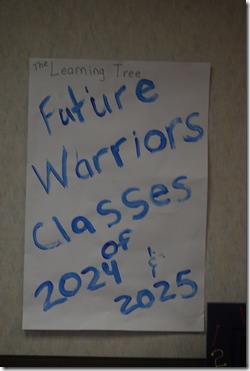 The Learning Tree
Future
Warriors
Classes
of
2024 &
2025